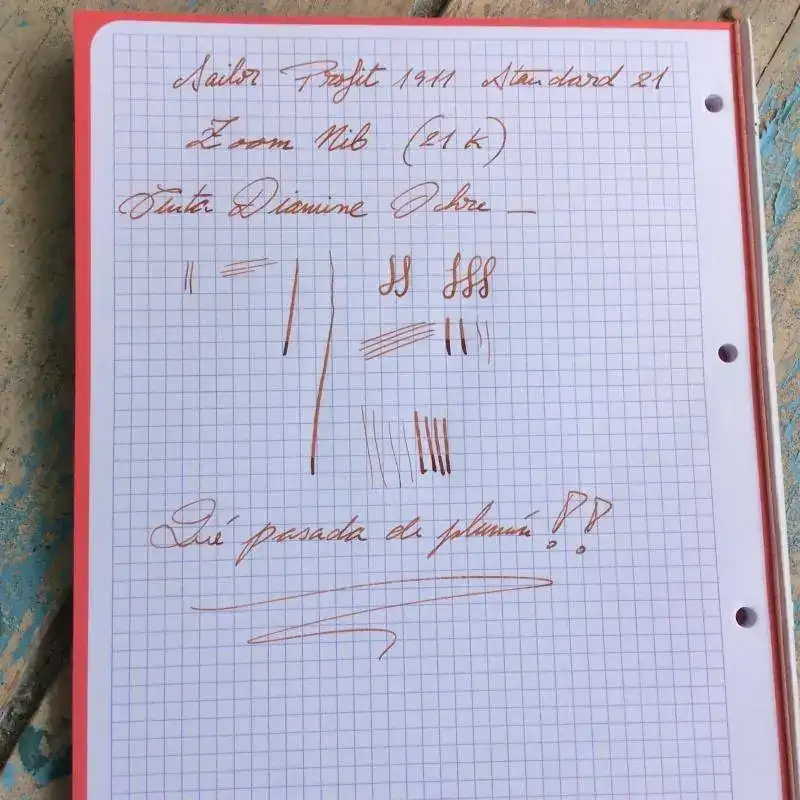 Sailor Profit 1911 Standard 21
Zoom Nib (21 K)
Tinta Diamine Ochre —
Qué pasada de plumín!!